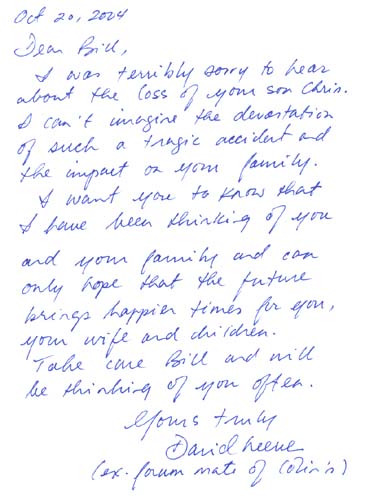 Oct 20, 2004
Dear Bill,
I was terribly sorry to hear
about the loss of your son Chris.
I can't imagine the devastation
of such a tragic accident and
the impact on your family.
I want you to know that
I have been thinking of you
and your family and can
only hope that the future
brings happier times for you,
your wife and children.
Take care Bill and will
be thinking of you often.
Yours truly
David
(ex. forum mate of